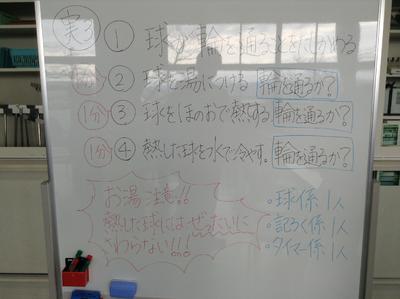 実3 ① 球が輪を通ることをたしかめる
1分 ② 球を湯につける 輪を通るか?
1分 ③ 球をほのおで熱する 輪を通るか?
1分 ④ 熱した球を水で冷やす。輪を通るか?
お湯注意!!
熱した球にはぜったいに
さわらない!!!
・球係 1人
・記ろく係 1人
・タイマー係 1人